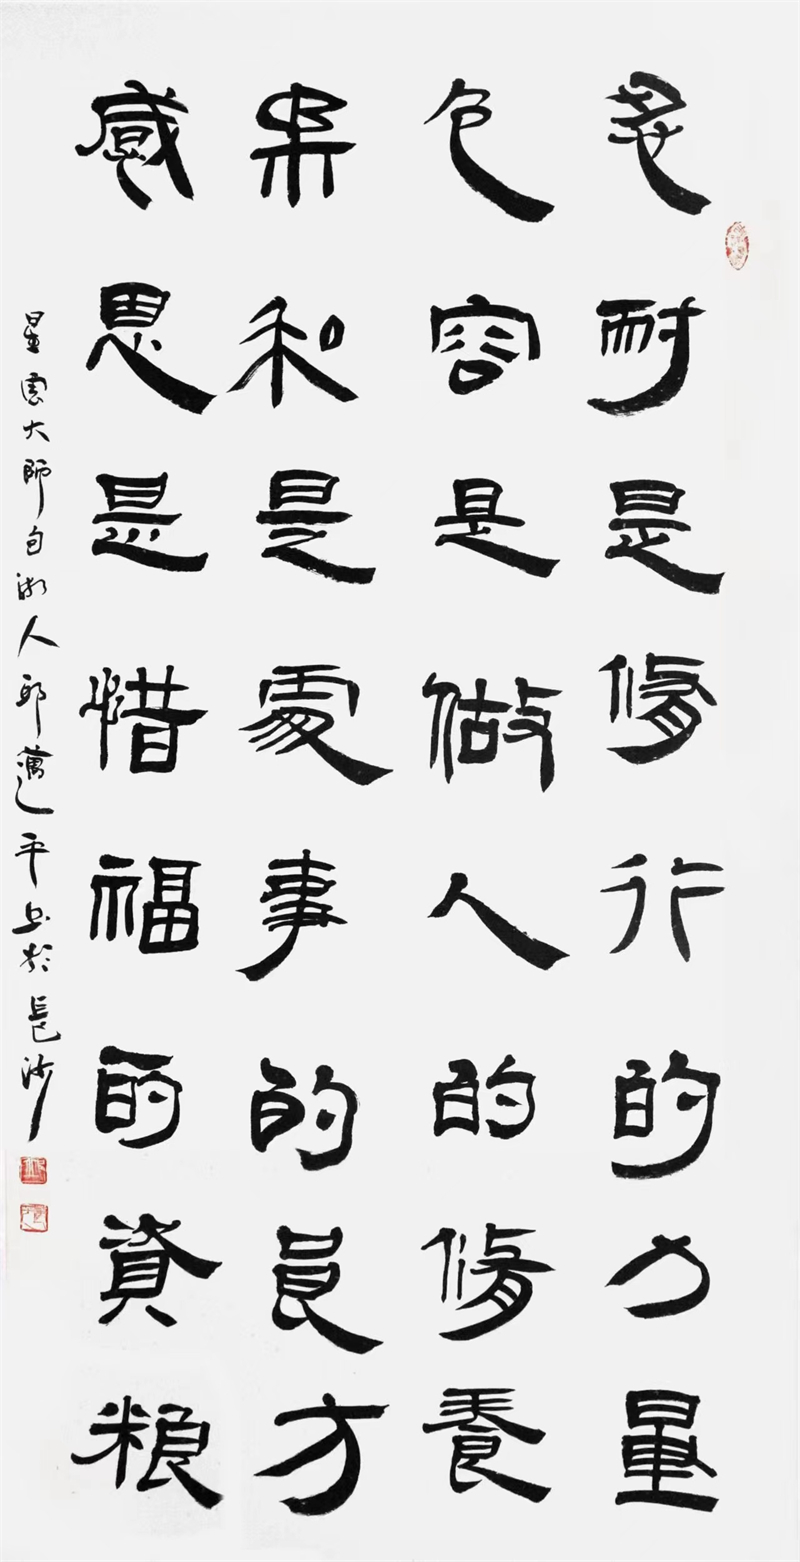 忍耐是脩行的力量
包容是做人的脩養
柔和是處事的良方
感恩是惜福的資粮
星雲大師句湘人邱邁平书於長沙